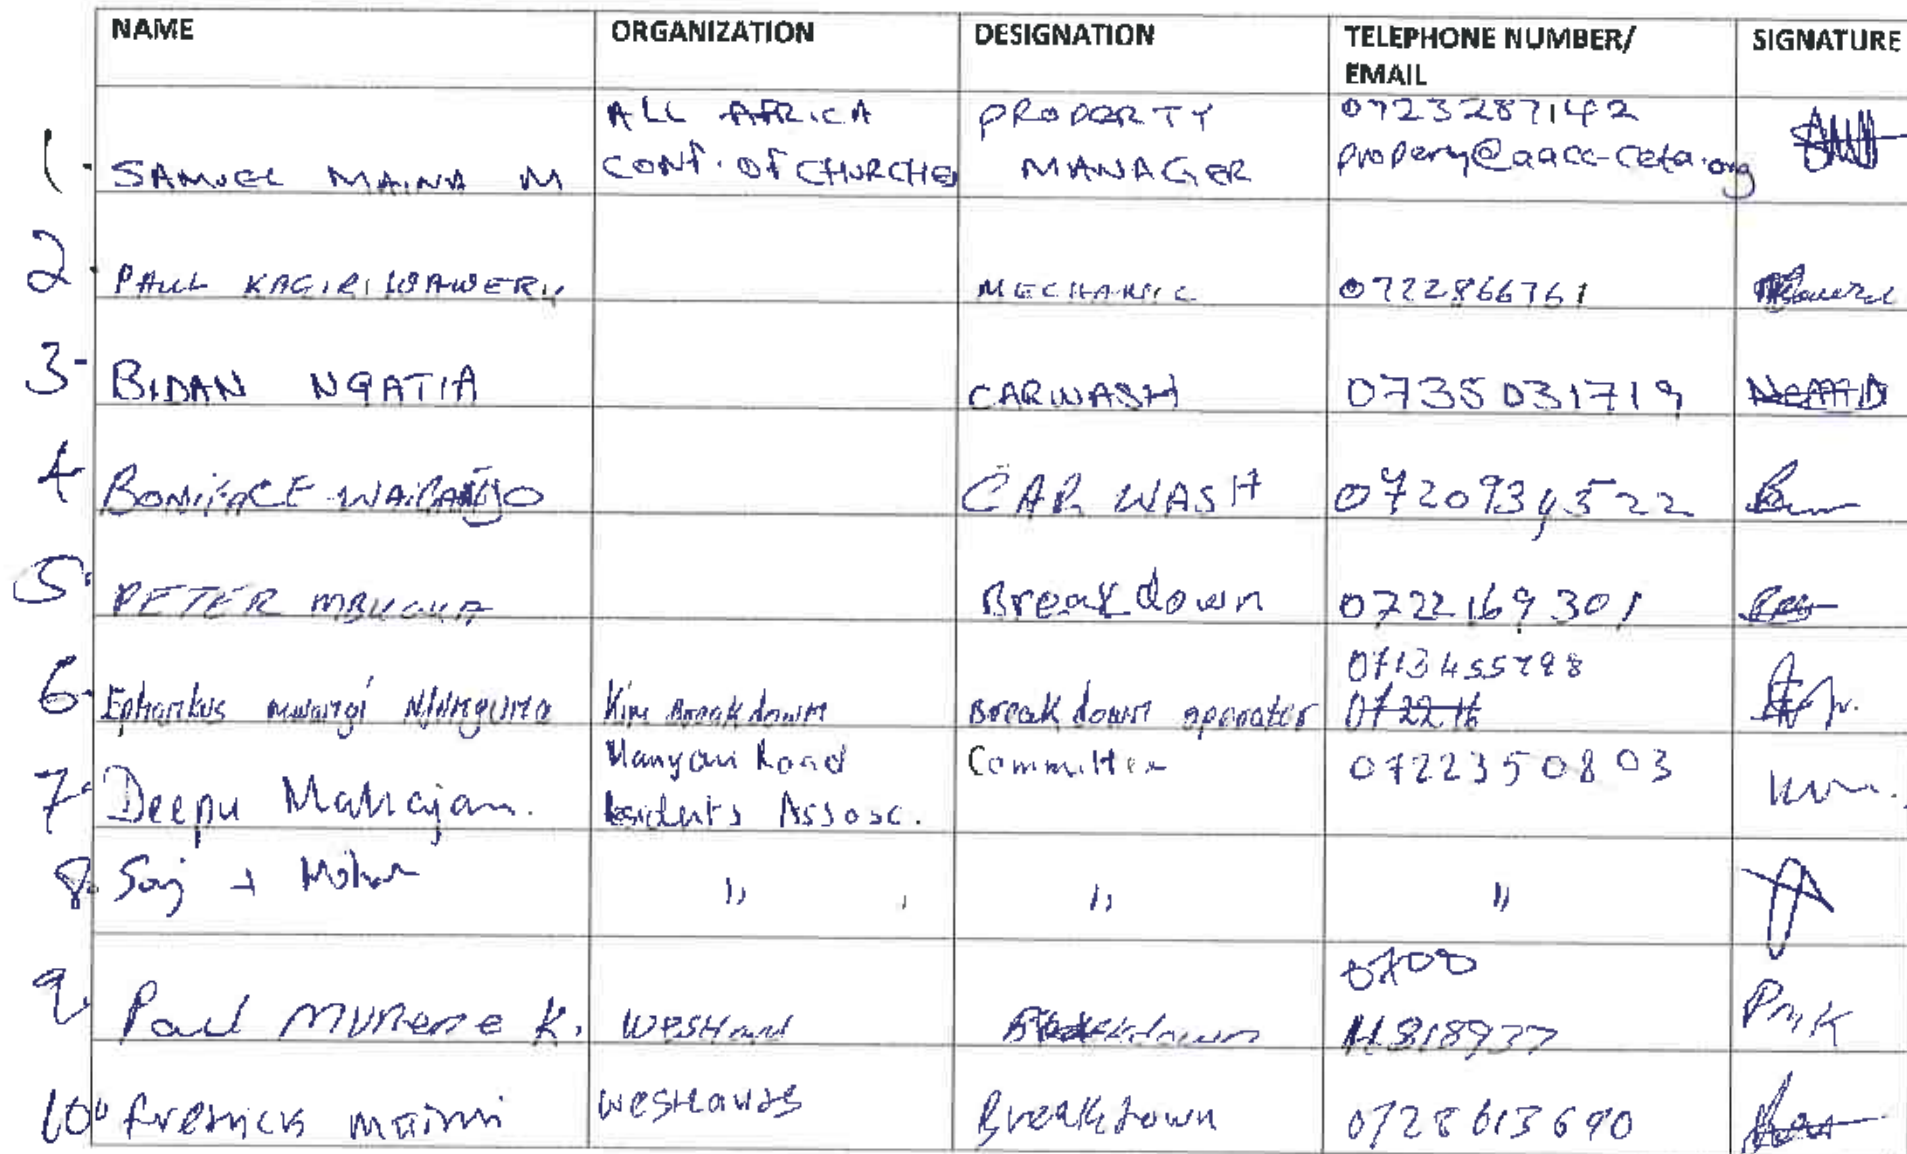 NAME ORGANIZATION DESIGNATION TELEPHONE NUMBER/ EMAIL SIGNATURE
1. SAMUEL MAINA M ALL AFRICA CONF. OF CHURCHES PROPERTY MANAGER 0723287142 property@aacc-ceta.org
2. PAUL KAGIRI WAWERU MECHANIC 0722866761
3- BIDAN NGATIA CARWASH 0735031719
4 BONIFACE WAIRANGO CAR WASH 0720934522
5. PETER MBUGUA Breakdown 0722169301
6. mwangi Kim Breakdown Breakdown operator 0713455798 072216
7. Deepu Mahajan. Manyani Road Residents Assosc. Committee 0722350803
8. Saj + Mohan ,, ,, ,,
9. Paul MUNENE K. Westland Breakdown 0700 PMK
10. maini westlands Breakdown 0728613690